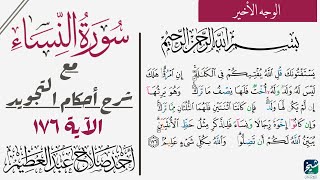 الوجه الأخير
سُورَةُ النِّسَاءِ
مع
شرح أحكام التجويد
الآية ١٧٦
أحمد صلاح عبد العظيم
بِسْمِ اللَّهِ الرَّحْمَنِ الرَّحِيمِ
يَسْتَفْتُونَكَ قُلِ اللَّهُ يُفْتِيكُمْ فِي الْكَلَالَةِ إِنِ امْرُؤٌا هَلَكَ
لَيْسَ لَهُ وَلَدٌ وَلَهُ أُخْتٌ فَلَهَا نِصْفُ مَا تَرَكَ وَهُوَ يَرِثُهَا
إِن لَّمْ يَكُن لَّهَا وَلَدٌ فَإِن كَانَتَا اثْنَتَيْنِ فَلَهُمَا الثُّلُثَانِ مِمَّا تَرَكَ
وَإِن كَانُوا إِخْوَةً رِّجَالًا وَنِسَاءً فَلِلذَّكَرِ مِثْلُ حَظِّ الْأُنثَيَيْنِ
يُبَيِّنُ اللَّهُ لَكُمْ أَن تَضِلُّوا وَاللَّهُ بِكُلِّ شَيْءٍ عَلِيمٌ